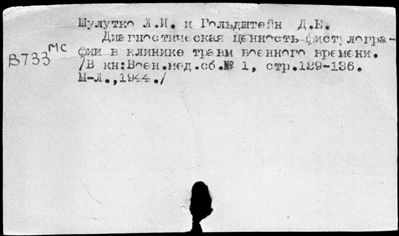 Шулутко Л.И. и Гольдштейн Д.Е.
Диагностическая ценность фистулогра-
фии в клинике травм военного времени.
/В кн:Воен.мед.сб.№ 1, стр.129-136.
М-Л.,1944./
В733 МС